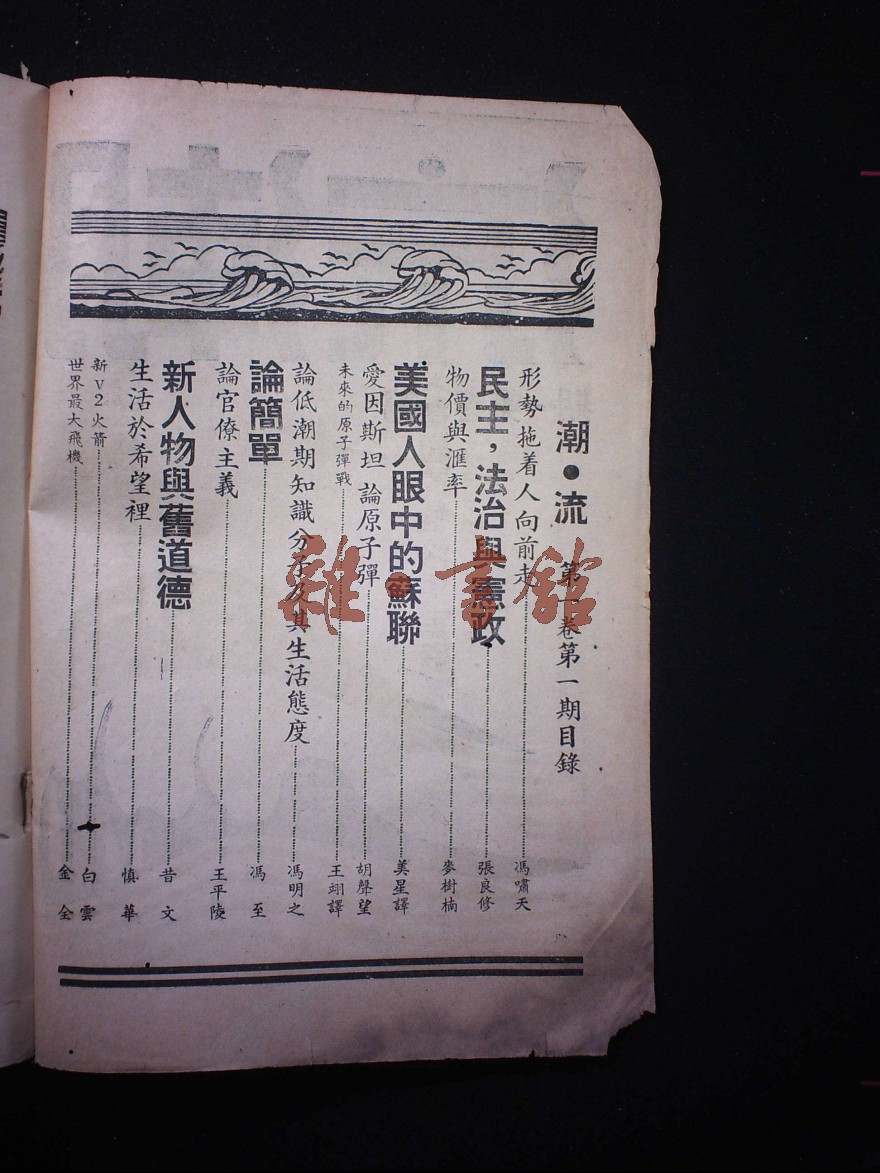 潮•流 第 卷第一期目錄
形勢拖着人向前走 馮嘯天
民主，法治與憲政 張良修
物價與滙率 麥樹楠
美國人眼中的蘇聯 美星譯
愛因斯坦論原子彈 胡聲望
未來的原子彈戰 王翊譯
論低潮期知識分子及其生活態度 馮明之
論簡單 馮至
論官僚主義 王平陵
新人物與舊道德 昔文
生活於希望裡 慎華
新V2火箭 白雲
世界最大飛機 金全
雜·書館